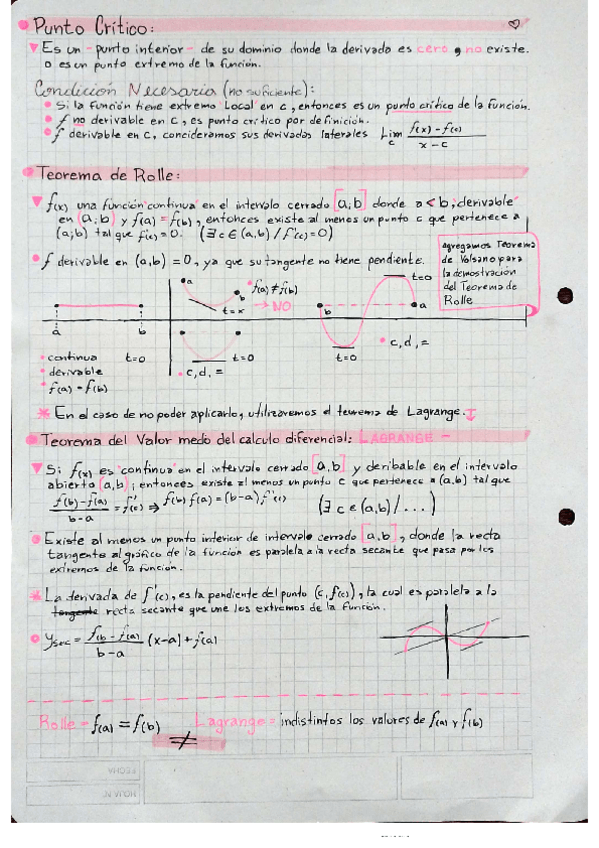 Punto Crítico:
Es un - punto interior - de su dominio donde la derivada es cero y no existe.
o es un punto extremo de la función.
Condición Necesaria (no suficiente):
Si la función tiene extremo "Local" en c, entonces es un punto crítico de la función.
f no derivable en c, es punto crítico por definición.
f derivable en c, concideramos sus derivadas laterales Lim c f(x) - f(c) / x - c
Teorema de Rolle:
f(x) una función "continua" en el intervalo cerrado [a,b] donde a < b; "derivable"
en (a;b) y f(a) = f(b), entonces existe al menos un punto c que pertenece a
(a;b) tal que f'(c) = 0. (∃ c ∈ (a,b) / f'(c) = 0)
agregamos Teorema
de Volsano para
la demostración
del Teorema de
Rolle
f derivable en (a,b) = 0, ya que su tangente no tiene pendiente.
a b f(a) ≠ f(b) t=0
t=x → NO b a
a b
continua t=0 t=0 t=0 c,d,=
derivable c,d,=
f(a) = f(b)
En el caso de no poder aplicarlo, utilizaremos el teorema de Lagrange.
Teorema del Valor medo del calculo diferencial: LAGRANGE -
Si f(x) es "continua" en el intervalo cerrado [a,b] y deribable en el intervalo
abierto (a,b); entonces existe al menos un punto c que pertenece a (a,b) tal que
f(b) - f(a) / b - a = f'(c) ⇒ f(b) f(a) = (b-a) f'(c) (∃ c ∈ (a,b) / ...)
Existe al menos un punto interior de intervalo cerrado [a,b], donde la recta
tangente al gráfico de la función es paralela a la recta secante que pasa por los
extremos de la función.
La derivada de f'(c), es la pendiente del punto (c, f(c)), la cual es paralela a la
tangente recta secante que une los extremos de la función.
ysec = f(b - f(a) / b - a (x-a) + f(a)
Rolle - f(a) = f(b) Lagrange = indistintos los valores de f(a) y f(b)
≠
FECHA
HOJA Nº